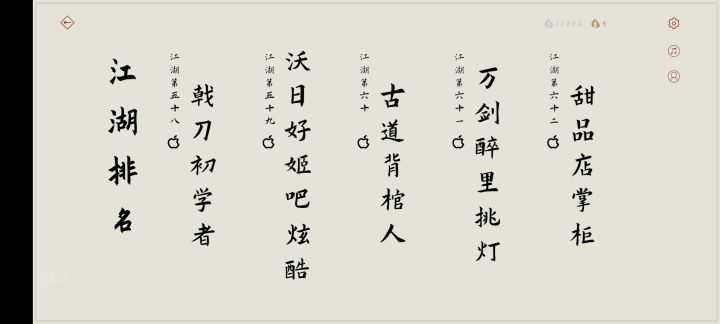 江湖排名
江湖第五十八
戟刀初学者
江湖第五十九
沃日好姬吧炫酷
江湖第六十
古道背棺人
江湖第六十一
万剑醉里挑灯
江湖第六十二
甜品店掌柜